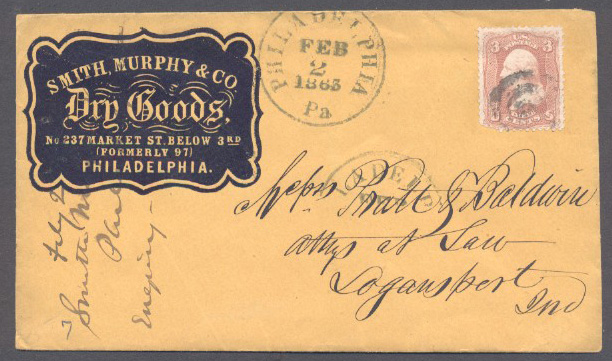 SMITH, MURPHY & CO.
Dry Goods,
No 237 MARKET ST. BELOW 3RD
(FORMERLY 97)
PHILADELPHIA.
PHILADELPHIA
FEB
2
1863
Pa
3 U.S. POSTAGE 3
CENTS
Messrs Pratt & Baldwin
Attys at Law
Logansport
Ind
July 2
Smith M
Enquiry